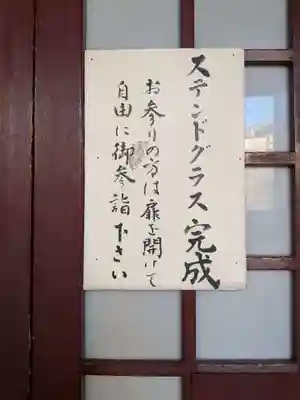 ステンドグラス完成
お参りの方は扉を開けて
自由に御参詣下さい